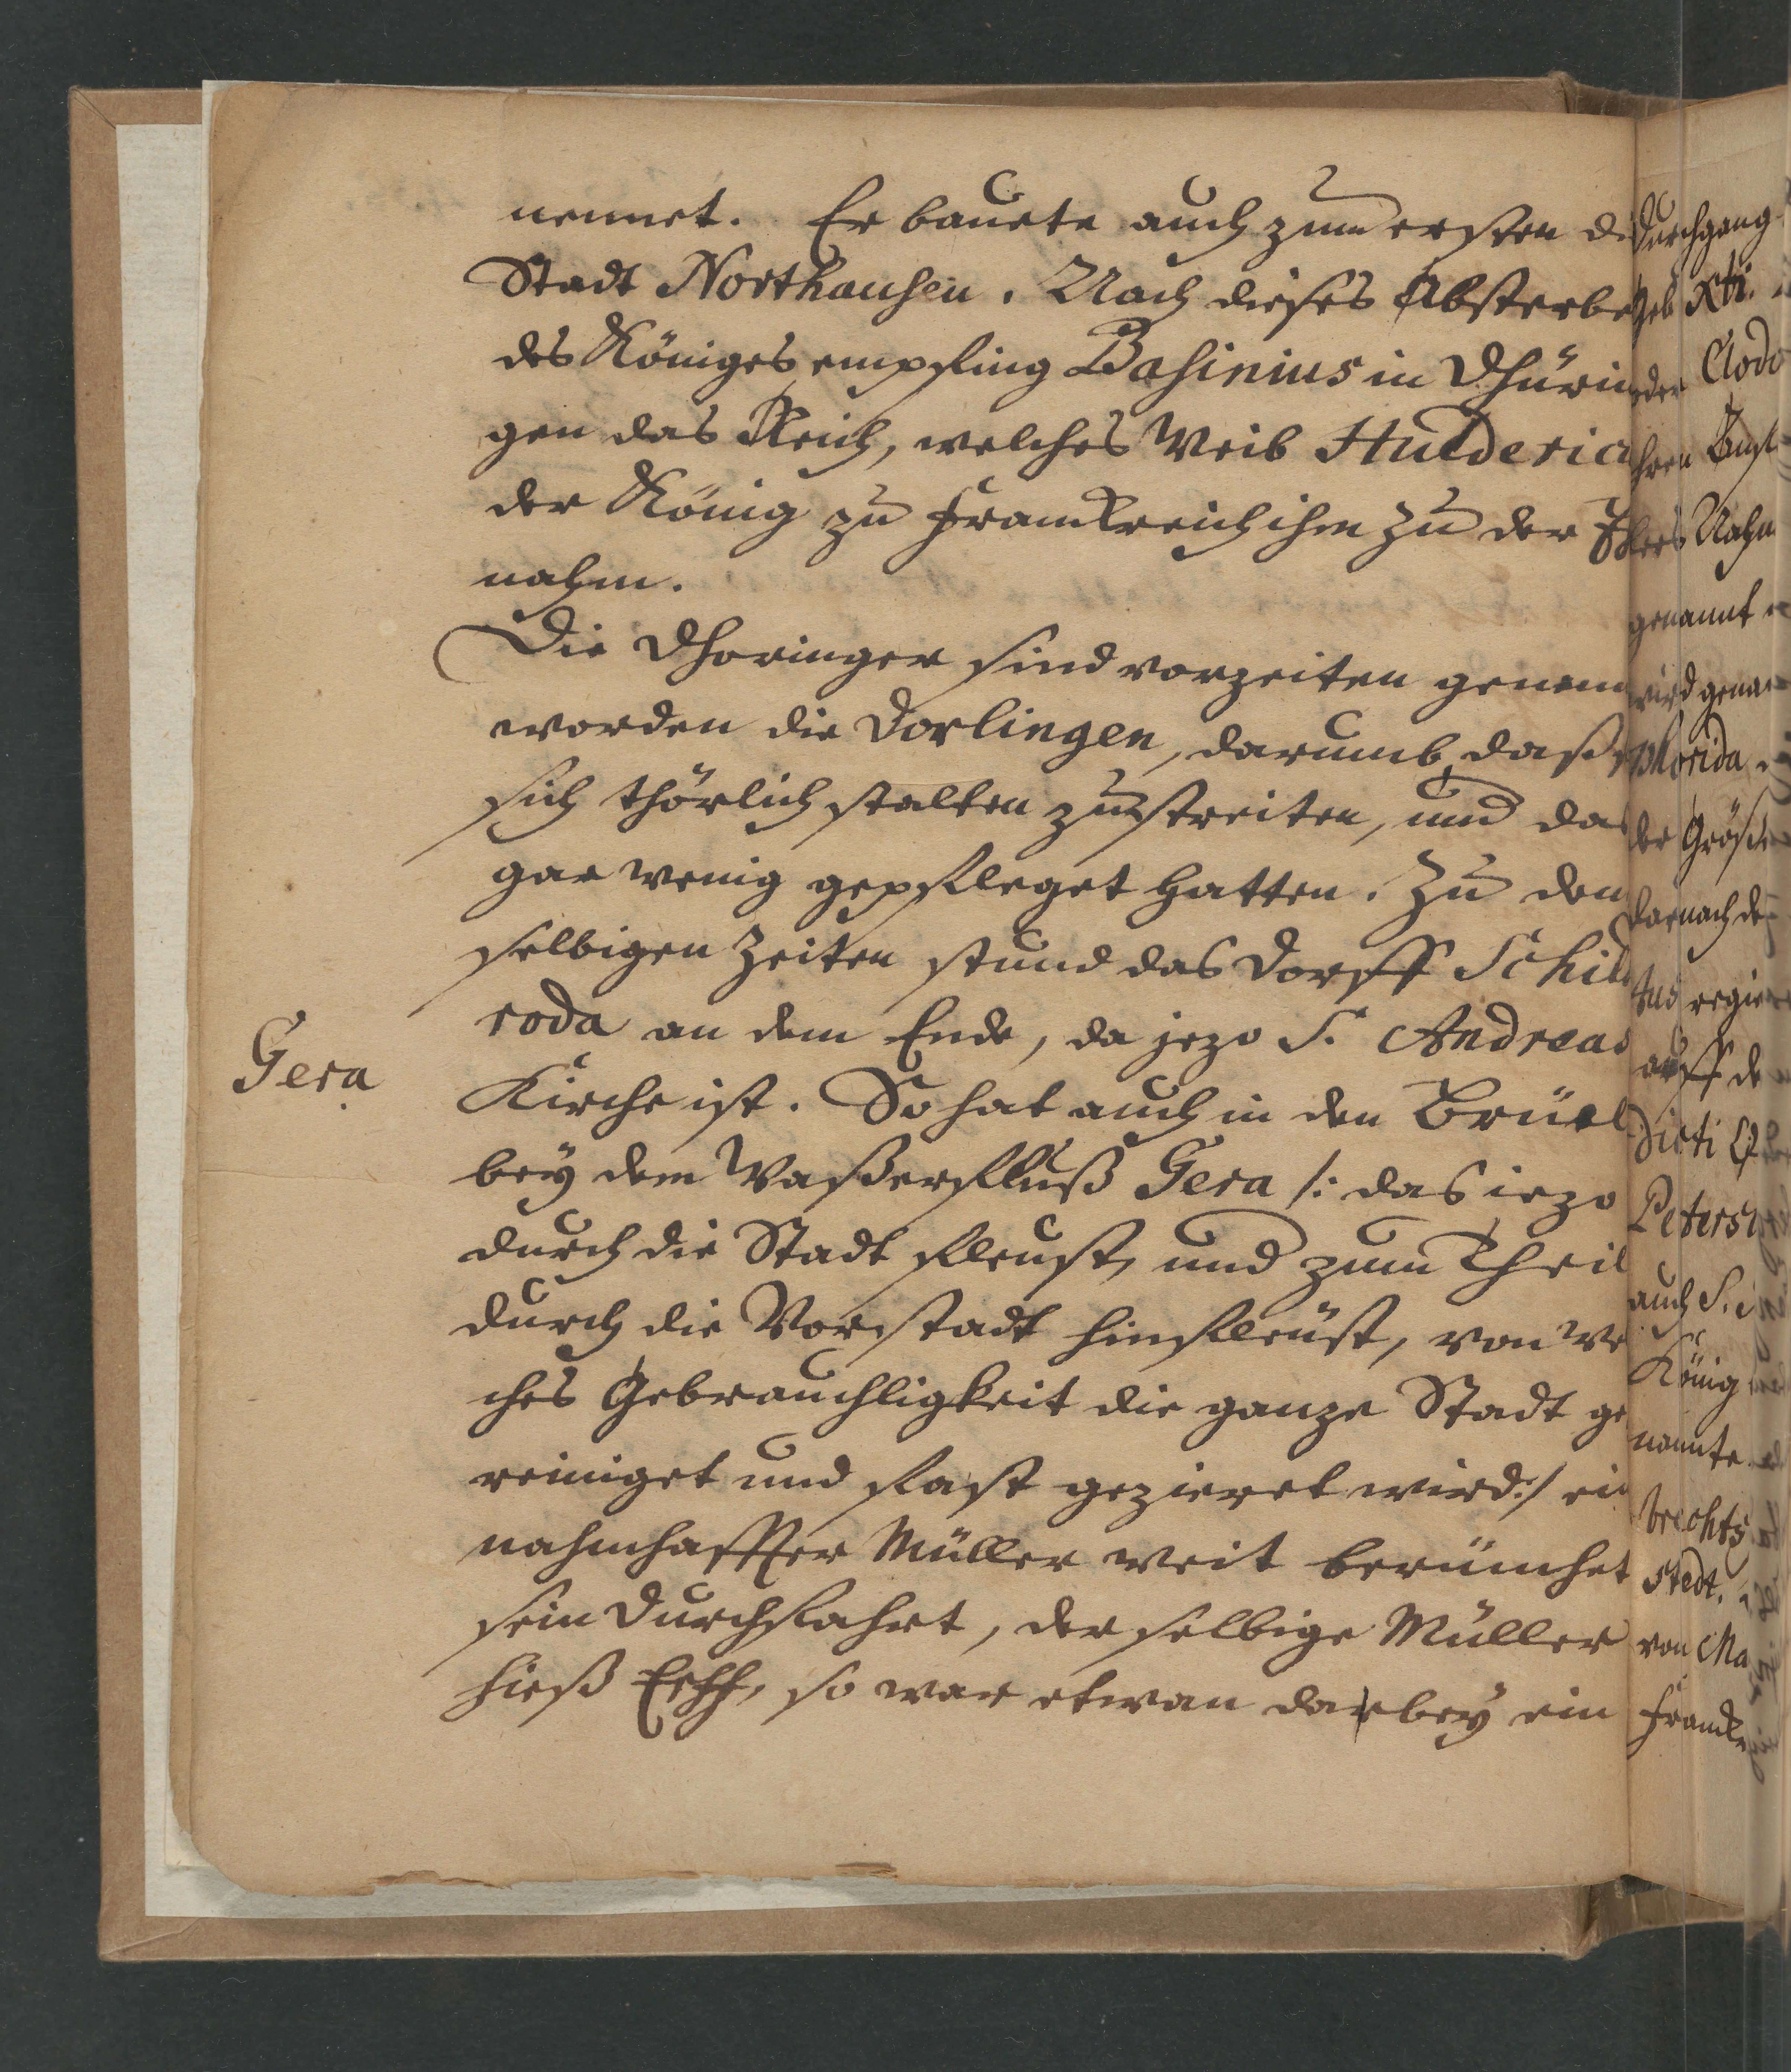 nennet. Er bauete auch zum ersten di
Stadt Northausen. Nach dieses Absterbe
des Königes empfing Basinius in Dhürin
gen das Reich, welches Weib Hulderica
der König zu Franckreich ihm zu der Ehe
nahm.
Die Dhoringer sind vorzeiten genen
worden die Dorlingen, darumb daß
sich thörlich stalten zu streiten, und das
gar wenig gepfleget hatten. Zu den
selbigen Zeiten stund das Dorff Schil
roda an dem Ende, da jezo S. Andreas
Gera
Kirche ist. So hat auch in den Brüel
bey dem Waßerfluß Gera /: das iezo
durch die Stadt fleust, und zum Theil
durch die Vorstadt hinfleüst, von we
ches Gebrauchligkeit die ganze Stadt ge
reiniget und fast gezieret wird :/ ein
nahmhaffter Müller weit berümhet
sein Durchfahrt, der selbige Müller
hieß Erff, so war etwan darbey ein
Durchgang
geb. Xti.
der Clodo
hren
Nahm
genannt
wird genan
Phorida
der Größe
darnach de
tus regier
auff de
dicti
Peters
auch S.
König
nannte
brechts
stedt.
von Ma
Francke